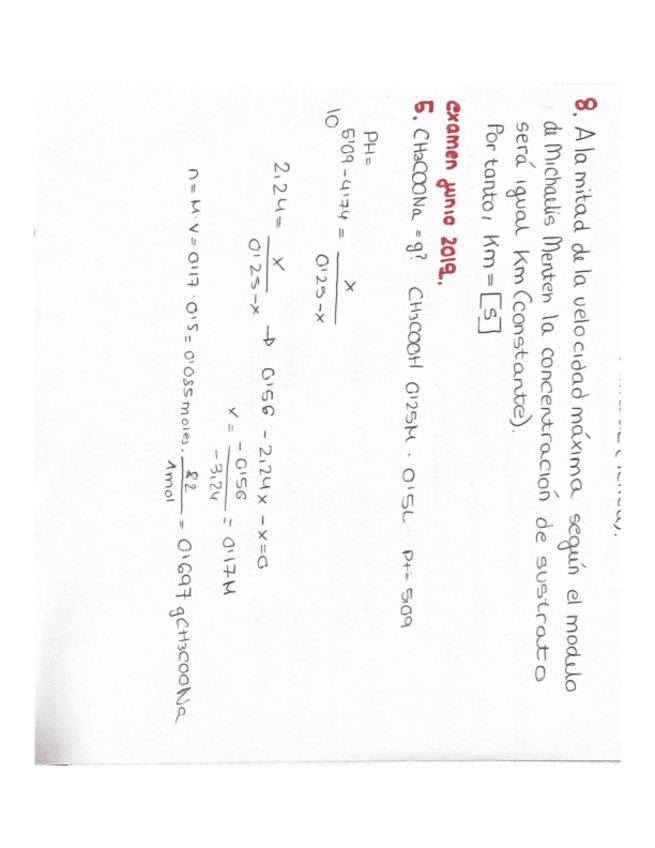 8. A la mitad de la velocidad máxima según el modelo
de Michaelis Menten la concentración de sustrato
será igual Km (constante).
Por tanto, Km = [S]
examen junio 2019.
5. CH3COONa = g? CH3COOH 0'25M · 0'5L pH= 5,09
PH=
10^5'09-4'74 = x / 0'25-x
2,24 = x / 0'25-x → 0'56 - 2,24x - x=0
x = -0'56 / -3,24 = 0'17M
n = M·V = 0'17 · 0'5 = 0'085 moles. 82 / 1mol = 0'697 gCH3COONa